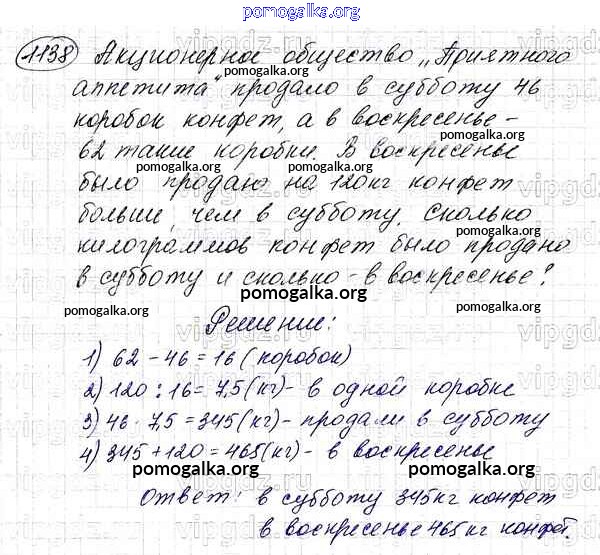 pomogalka.org
1138 Акционерное общество „Приятного
pomogalka.org
аппетита" продало в субботу 46
коробок конфет, а в воскресенье -
pomogalka.org
62 такие коробки. В воскресенье
pomogalka.org
было продано на 120кг конфет
больше, чем в субботу. Сколько
pomogalka.org
килограммов конфет было продано
в субботу и сколько - в воскресенье?
pomogalka.org
pomogalka.org
Решение:
1) 62 - 46 = 16 (коробок)
2) 120 : 16 = 7,5 (кг) - в одной коробке
3) 46 · 7,5 = 345 (кг) - продали в субботу
4) 345 + 120 = 465 (кг) - в воскресенье
pomogalka.org
pomogalka.org
Ответ: в субботу 345кг конфет
в воскресенье 465кг конфет.
pomogalka.org